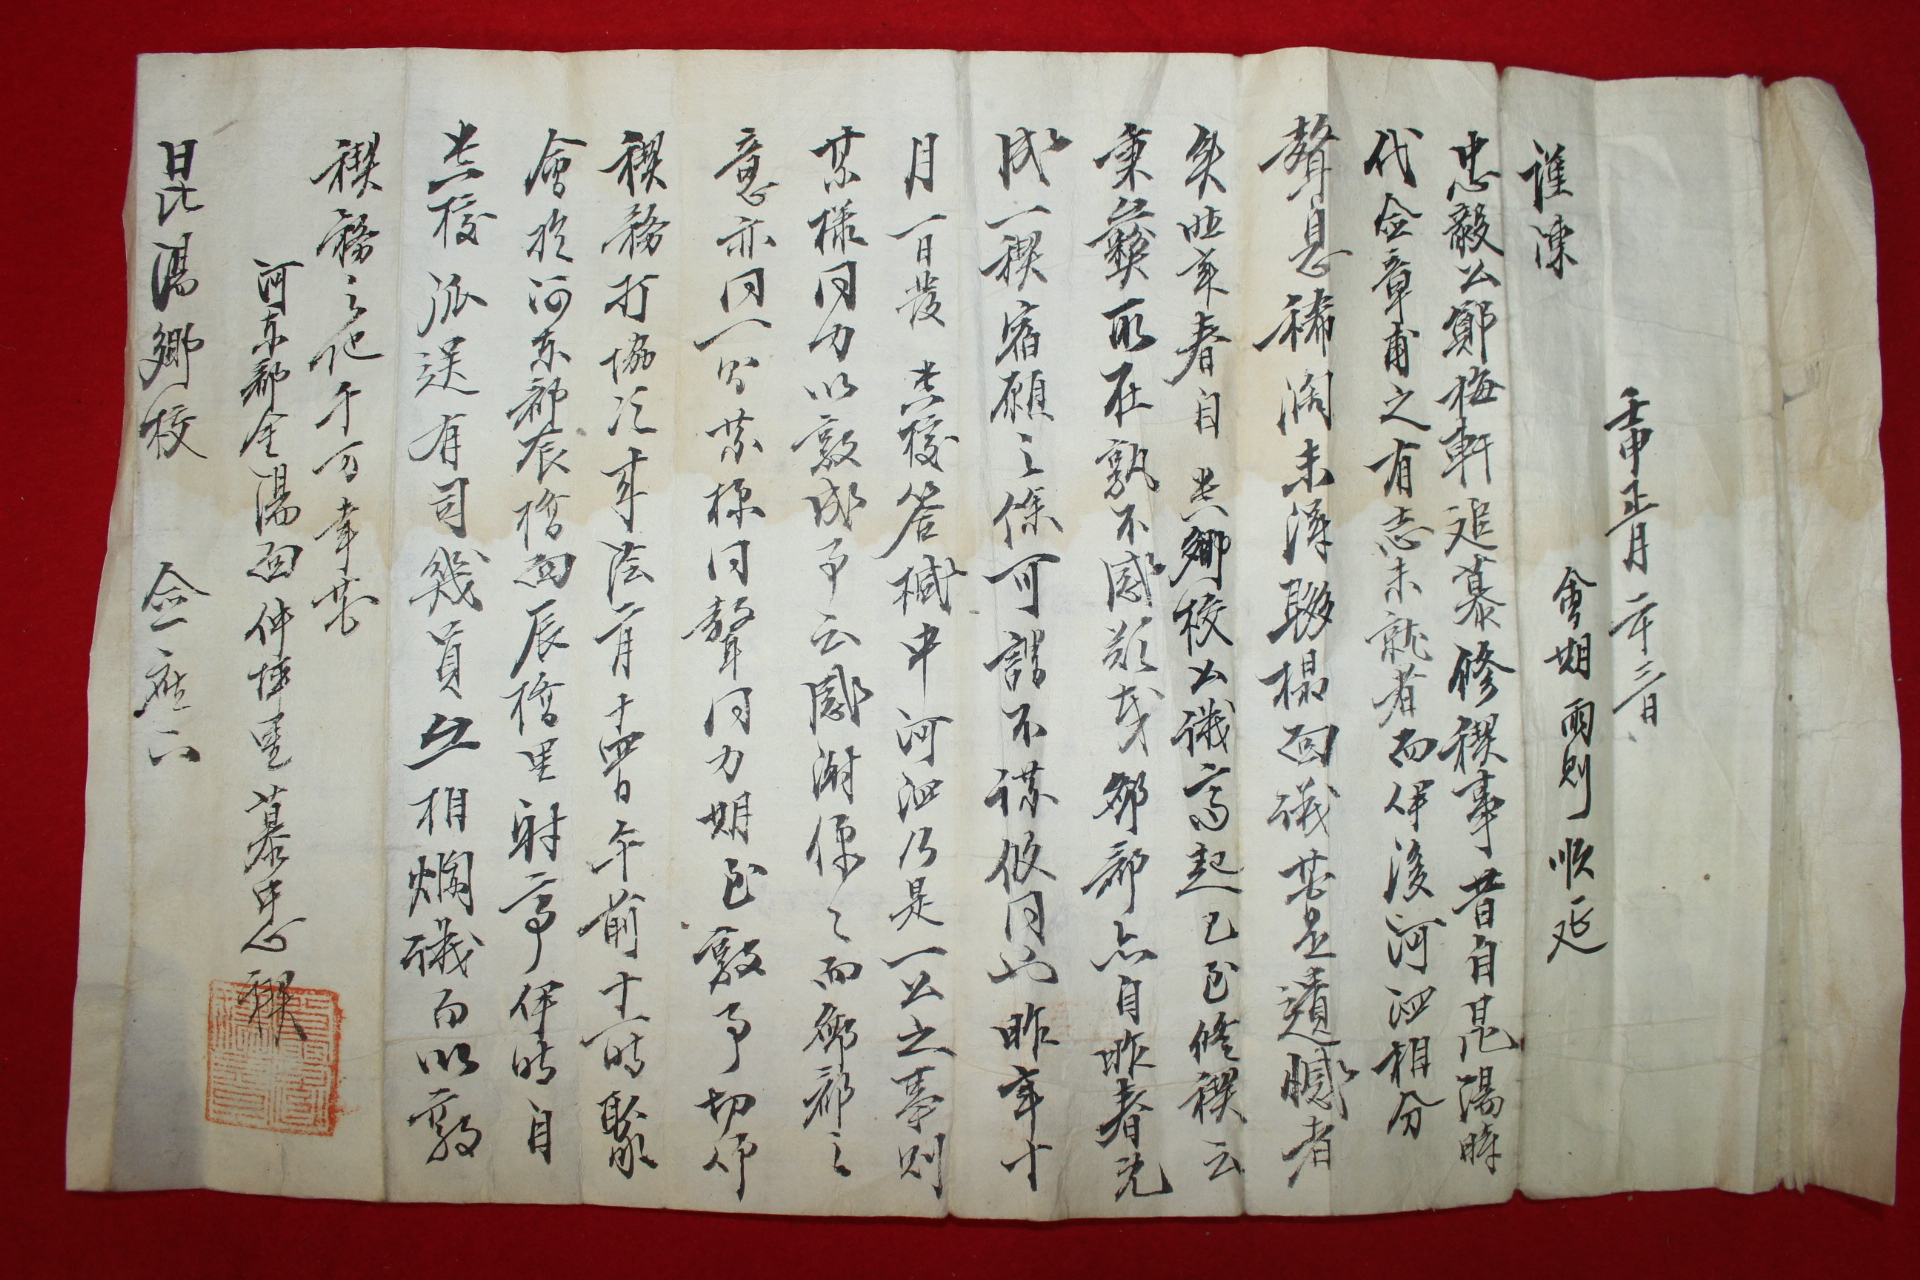 壬申正月二十三日
會期雨則順延
謹陳
忠毅公鄭梅軒追慕修稧事昔自昆陽時
代僉章甫之有志未就者而伊後河泗相分
聲息稀濶未得聯榻面議甚是遺憾者
矣昨年春自 貴鄕校公議高起已至修稧云
秉彝所在孰不感歎哉鄙郡亦自昨春先
成一稧宿願之餘可謂不謀攸同也昨年十
月一日發 貴校答椷中河泗乃是一公之事則
某樣同力以敦成事云感謝僕々而鄙郡之
意亦同一某樣同聲同力期至敦事切仰
稧務打協次事陰二月十四日午前十一時聚
會於河東郡辰橋面辰橋里射亭伊時自
貴校派送有司幾員互相爛議而以敦
稧務之地千万幸甚
河東郡金陽面仲坪里慕忠稧
昆陽鄕校 僉座下